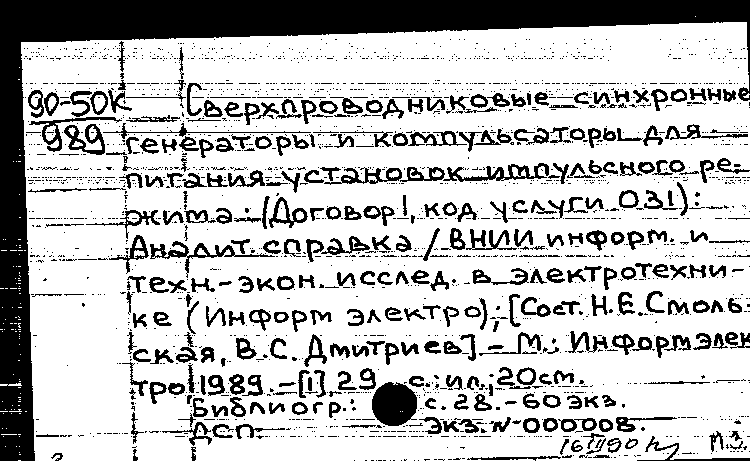 90-50К
989
Сверхпроводниковые синхронные
генераторы и компульсаторы для
питания установок импульсного ре-
жима : (Договор!, код услуги 031) :
Аналит. справка / ВНИИ информ. и
техн.-экон. исслед. в электротехни-
ке (Информэлектро); [Сост. Н.Е.Смоль-
ская, В.С. Дмитриев]. - М.: Информэлек
тро, 1989. - [1], 29 с.: ил.; 20 см.
Библиогр.: с. 28. - 60 экз.
ДСП. Экз. N-000008.
16 III 90 М.З.